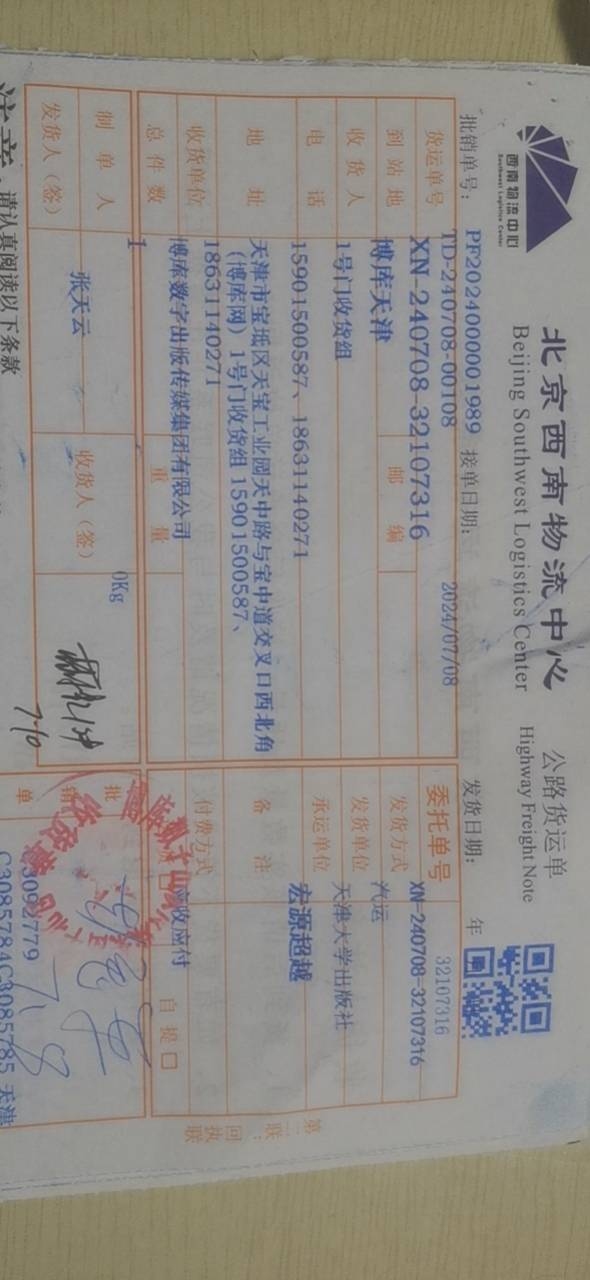 西南物流中心
Southwest Logistics Center
北京西南物流中心 公路货运单
Beijing Southwest Logistics Center Highway Freight Note
批销单号: PF2024000001989 接单日期: 2024/07/08 发货日期: 年
TD-240708-00108 32107316
货运单号 XN-240708-32107316 委托单号 XN-240708-32107316
到站地 博库天津 邮编 发货方式 汽运
收货人 1号门收货组 发货单位 天津大学出版社
电话 15901500587、18631140271 承运单位 宏源超越
地址 天津市宝坻区天宝工业园天中路与宝中道交叉口西北角
(博库网) 1号门收货组 15901500587、
18631140271
备注
收货单位 博库数字出版传媒集团有限公司 付费方式 应收应付
总件数 1 重量 0Kg 自提口
制单人 张天云 收货人(签) 7-10
发货人(签)
批销单 C3085784C3085785 天津
7.8
第二联:回执联
注意:请认真阅读以下条款